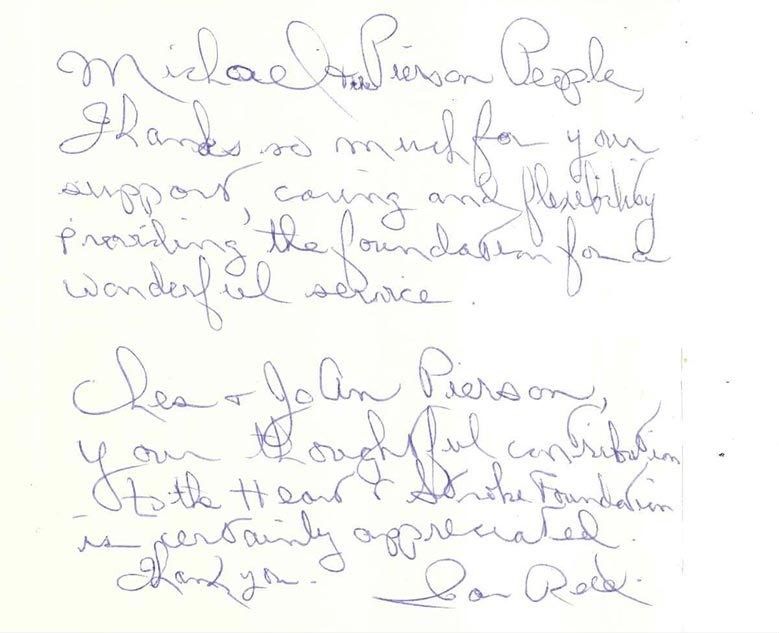 Michael & the Pierson People,
Thanks so much for your
support, caring and flexibility
providing the foundation for a
wonderful service.
& JoAn Pierson,
your thoughtful contribution
to the Heart & Stroke Foundation
is certainly appreciated.
Thank you.